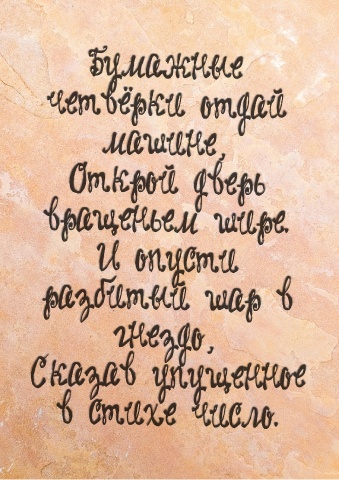 Бумажные
четвёрки отдай
машине,
Открой дверь
вращеньем шире.
И опусти
разбитый шар в
гнездо,
Сказав упущенное
в стихе число.